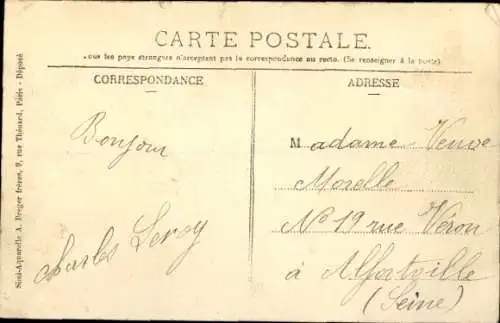 CARTE POSTALE.
ous les pays étrangers n'acceptent pas la correspondance au recto. (Se renseigner à la poste).
CORRESPONDANCE
ADRESSE
Bonjour
Charles Leroy
Madame Veuve
Morelle
No 19 rue Véron
à Alfortville
(Seine)
Simi-Aquarelle A. Breger frères, 9, rue Thénard, Paris - Déposé